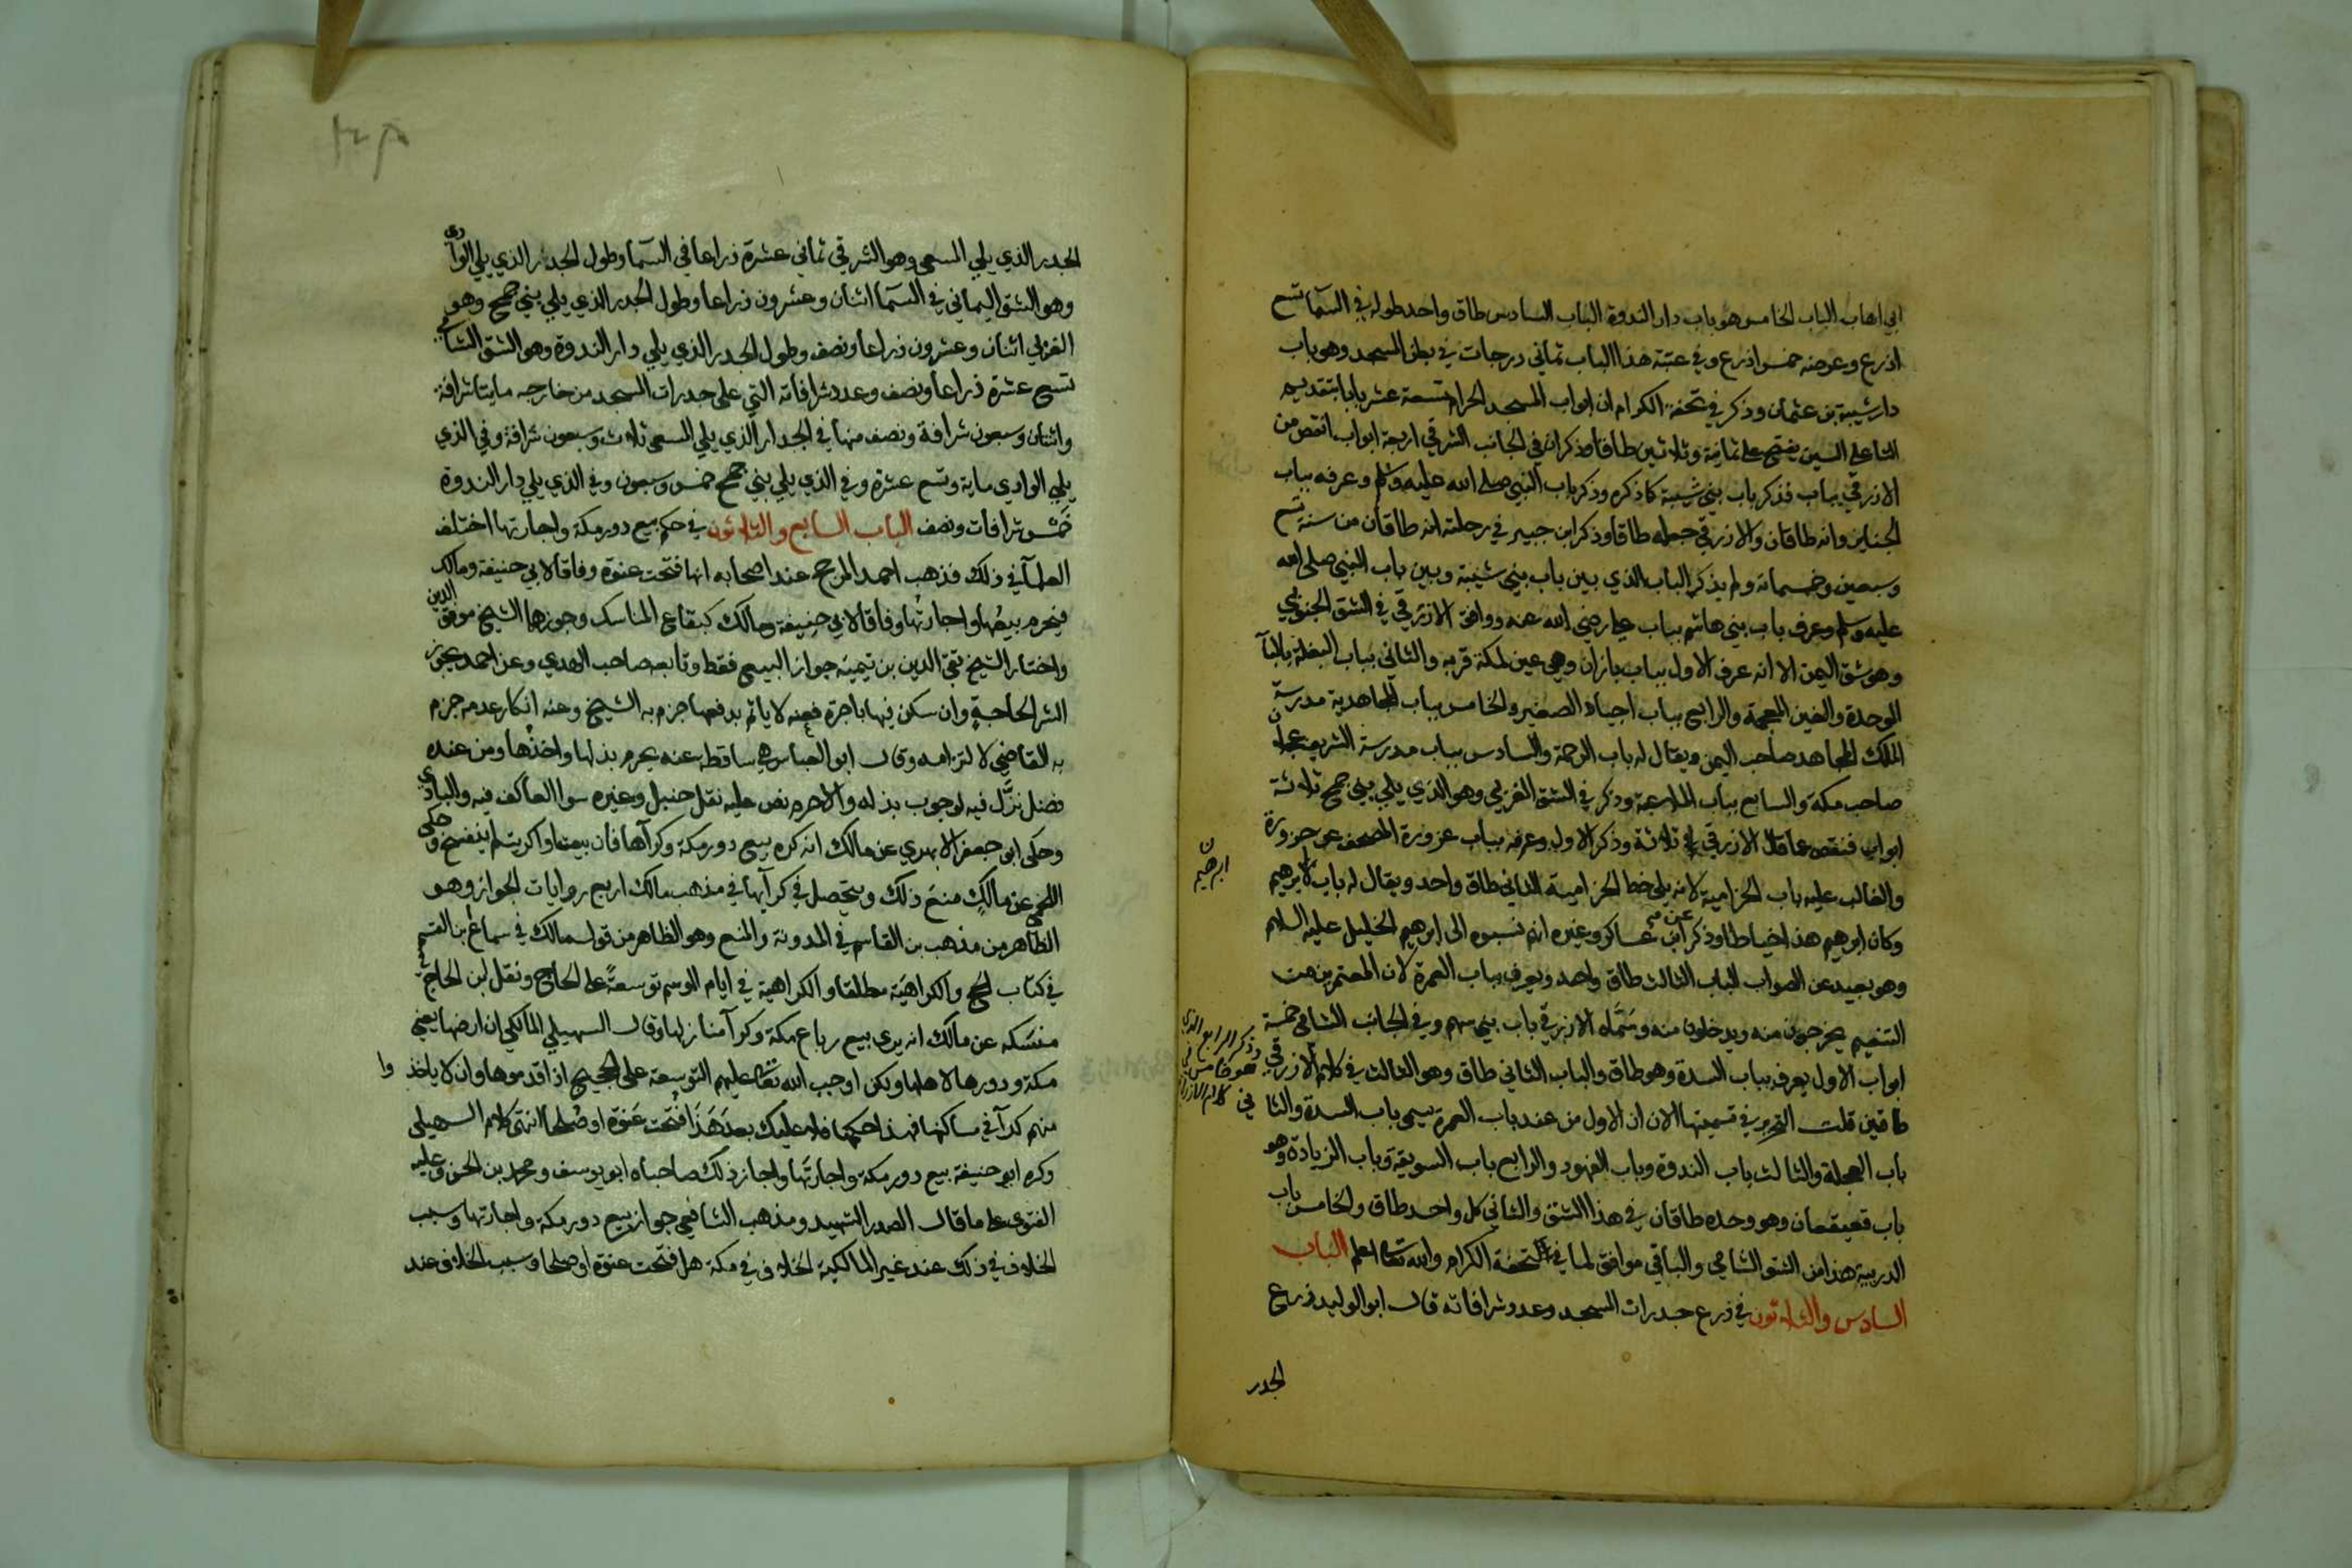 ابي اهاب الباب الخامس هو باب دار الندوة الباب السادس طاق واحد طوله في السمآ تسع
اذرع وعرضه خمس اذرع وفي عتبة هذا الباب ثماني درجات في بطن المسجد وهو باب
دار شيبة بن عثمان وذكر في تحفة الكرام ان ابواب المسجد الحرام تسعة عشر بابا بتقديم
التا على السين يفتح على ثمانية وثلاثين طاقا وذكر ان في الجانب الشرقي اربعة ابواب انقص من
الازرقي بباب فذكر باب بني شيبة كما ذكره وذكر باب النبي صلى الله عليه وسلم وعرفه بباب
الجنايز وانه طاقان والازرقي جعله طاقا وذكر ابن جبير في رحلته انه طاقان من سنة تسع
وسبعين وخمسمائة ولم يذكر الباب الذي بين باب بني شيبة وبين باب النبي صلى الله
عليه وسلم وعرف باب بني هاشم بباب علي رضي الله عنه ووافق الازرقي في الشق الجنوبي
وهو شق اليمن الا انه عرف الاول بباب بازان وهي عين لمكة قربه والثاني بباب البغلة بالبآ
الموحدة والغين المعجمة والرابع بباب اجياد الصغير والخامس بباب المجاهدية مدرسة
الملك المجاهد صاحب اليمن ويقال له باب الرحمة والسادس بباب مدرسة الشريف عجلان
صاحب مكة والسابع بباب الملاعبة وذكر في الشق الغربي وهو الذي يلي بني جمح ثلاثة
ابواب فنقص عما قال الازرقي ثلاثة وذكر الاول وعرفه بباب عزورة المصحف عن حزورة
والغالب عليه باب الحزامية لانه يلي خط الحزامية الثاني طاق واحد ويقال له باب ابرهيم
ابرهيم
وكان ابرهيم هذا خياطا وذكر ابن عساكر وغيره انهم نسبوه الى ابرهيم الخليل عليه السلام
وهو بعيد عن الصواب الباب الثالث طاق واحد ويعرف بباب العمرة لان المعتمر من
التنعيم يخرجون منه ويدخلون منه وسَمَّاه الازرقي باب بني سهم وفي الجانب الشامي خمسة
ابواب الاول يعرف بباب السدة وهو طاق والباب الثاني طاق وهو الثالث في كلام الازرقي
وذكر الرابع الذي
هو خامس في
كلام الازرقي
طاقين قلت التحرير في تسميتها الان ان الاول من عند باب العمرة يسمى باب السدة والثاني
باب العجلة والثالث باب الندوة وباب الفهود والرابع باب السويقة وباب الزيادة وهو
باب قعيقعان وهو وحده طاقان في هذا الشق والثاني كل واحد طاق والخامس باب
الدريبة هذا من الشق الشامي والباقي موافق لما في تحفة الكرام والله تعالى اعلم الباب
السادس والثلاثون في ذرع جدرات المسجد وعدد شرافاته قال ابو الوليد ذرع
الجدر
الجدر الذي يلي المسعى وهو الشرقي ثماني عشرة ذراعا في السمآ وطول الجدر الذي يلي الوادي
وهو الشق اليماني في السمآ اثنان وعشرون ذراعا وطول الجدر الذي يلي بني جمح وهو
الغربي اثنان وعشرون ذراعا ونصف وطول الجدر الذي يلي دار الندوة وهو الشق الشامي
تسع عشرة ذراعا ونصف وعدد شرافاته التي على جدرات المسجد من خارجه مايتا شرافة
واثنان وسبعون شرافة ونصف منها في الجدار الذي يلي المسعى ثلاث وسبعون شرافة وفي الذي
يلي الوادي ماية وتسع عشرة وفي الذي يلي بني جمح خمس وسبعون وفي الذي يلي دار الندوة
خمس شرافات ونصف الباب السابع والثلاثون في حكم بيع دور مكة واجارتها اختلف
العلمآ في ذلك فذهب احمد المرجح عند اصحابه انها فتحت عنوة وفاقا لابي حنيفة ومالك
فيحرم بيعُها واجارتُها وفاقا لابي حنيفة ومالك كبقاع المناسك وجوزهما الشيخ موفق الدين
واختار الشيخ تقي الدين بن تيمية جواز البيع فقط وتابعه صاحب الهدي وعن احمد يجوز
الشرا لحاجة وان سكن فيها باجرة فعنه لا ياثم بدفعها جزم به الشيخ وعنه انكار عدمه جزم
به القاضي لالتزامه وقال ابو العباس هي ساقطة عنه يحرم بذلها واخذها ومن عنده
فضل نزَّل فيه لوجوب بذله والا حرم نص عليه نقل حنبل وغيره سوا العاكف فيه والبادي
وحكى ابو جعفر الابهري عن مالك انه كره بيع دور مكة وكرآها فان بيعت او اكريت لم ينفسخ وحكى
اللخمي عن مالكٍ منعَ ذلك ويتحصل في كرآيها في مذهب مالك اربع روايات الجواز وهو
الظاهر من مذهب بن القاسم في المدونة والمنع وهو الظاهر من قول مالك في سماع بن القسم
في كتاب الحج والكراهيَة مطلقا والكراهية في ايام الموسم توسعةً على الحاج ونقل ابن الحاج في
منسَكه عن مالك انه يرى بيع رباع مكة وكرآ منازلها وقال السهيلي المالكي ان ارضها يعني
مكة ودورها لاهلها ولكن اوجب الله تعالى عليهم التوسعة على الحجيج اذا قدموها وان لا ياخذوا
منهم كرآ في مساكنها فهذا حكمها فلا عليك بعدَ هَذَا فُتحت عَنوة او صُلحا انتهى كلام السهيلي
وكره ابو حنيفة بيع دور مكة واجارتَها واجاز ذلك صاحباه ابو يوسف ومحمد بن الحسن وعليه
الفتوى على ما قال الصدر الشهيد ومذهب الشافعي جواز بيع دور مكة واجارتها وسبب
الخلاف في ذلك عند غير المالكية الخلاف في مكة هل فتحت عنوة او صلحا وسبب الخلاف عند